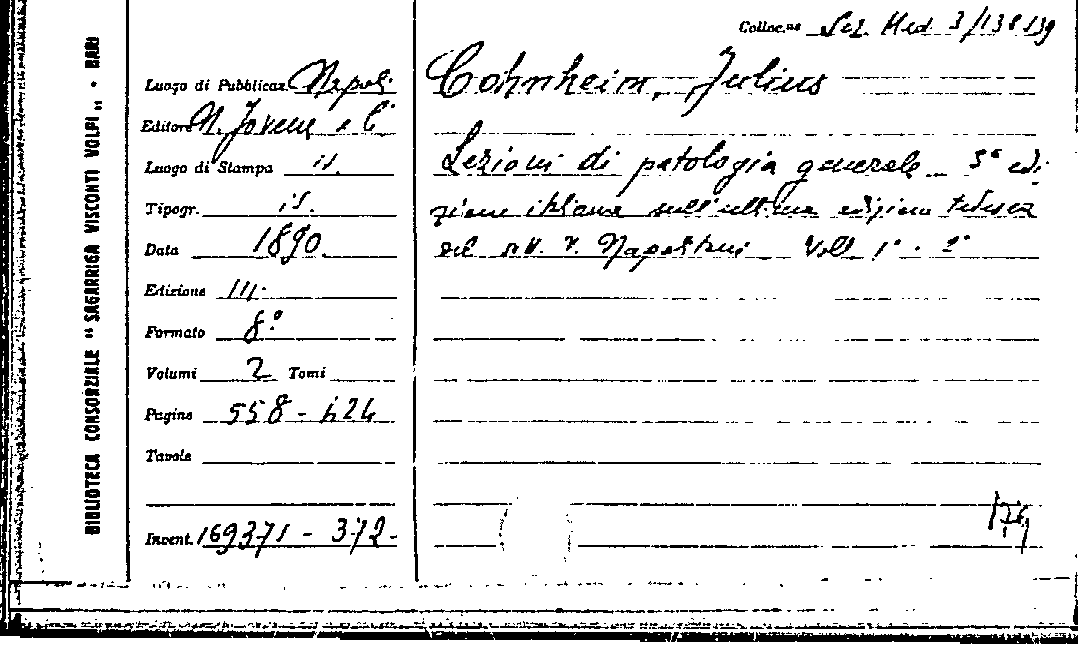 BIBLIOTECA CONSORZIALE "SAGARRIGA VISCONTI VOLPI" - BARI
Colloc.ne Sez. Med. 3/138 139
Luogo di Pubblicaz. Napoli
Editore N. Jovene e C
Luogo di Stampa is.
Tipogr. is.
Data 1890.
Edizione III.
Formato 8.º
Volumi 2 Tomi
Pagine 558 - 424
Tavole
Invent. 169371 - 372-
Cohnheim, Julius
Lezioni di patologia generale 3ª edi
zione italiana sull'ultima edizione tedesca
del V. Napolitani Voll 1º - 2º